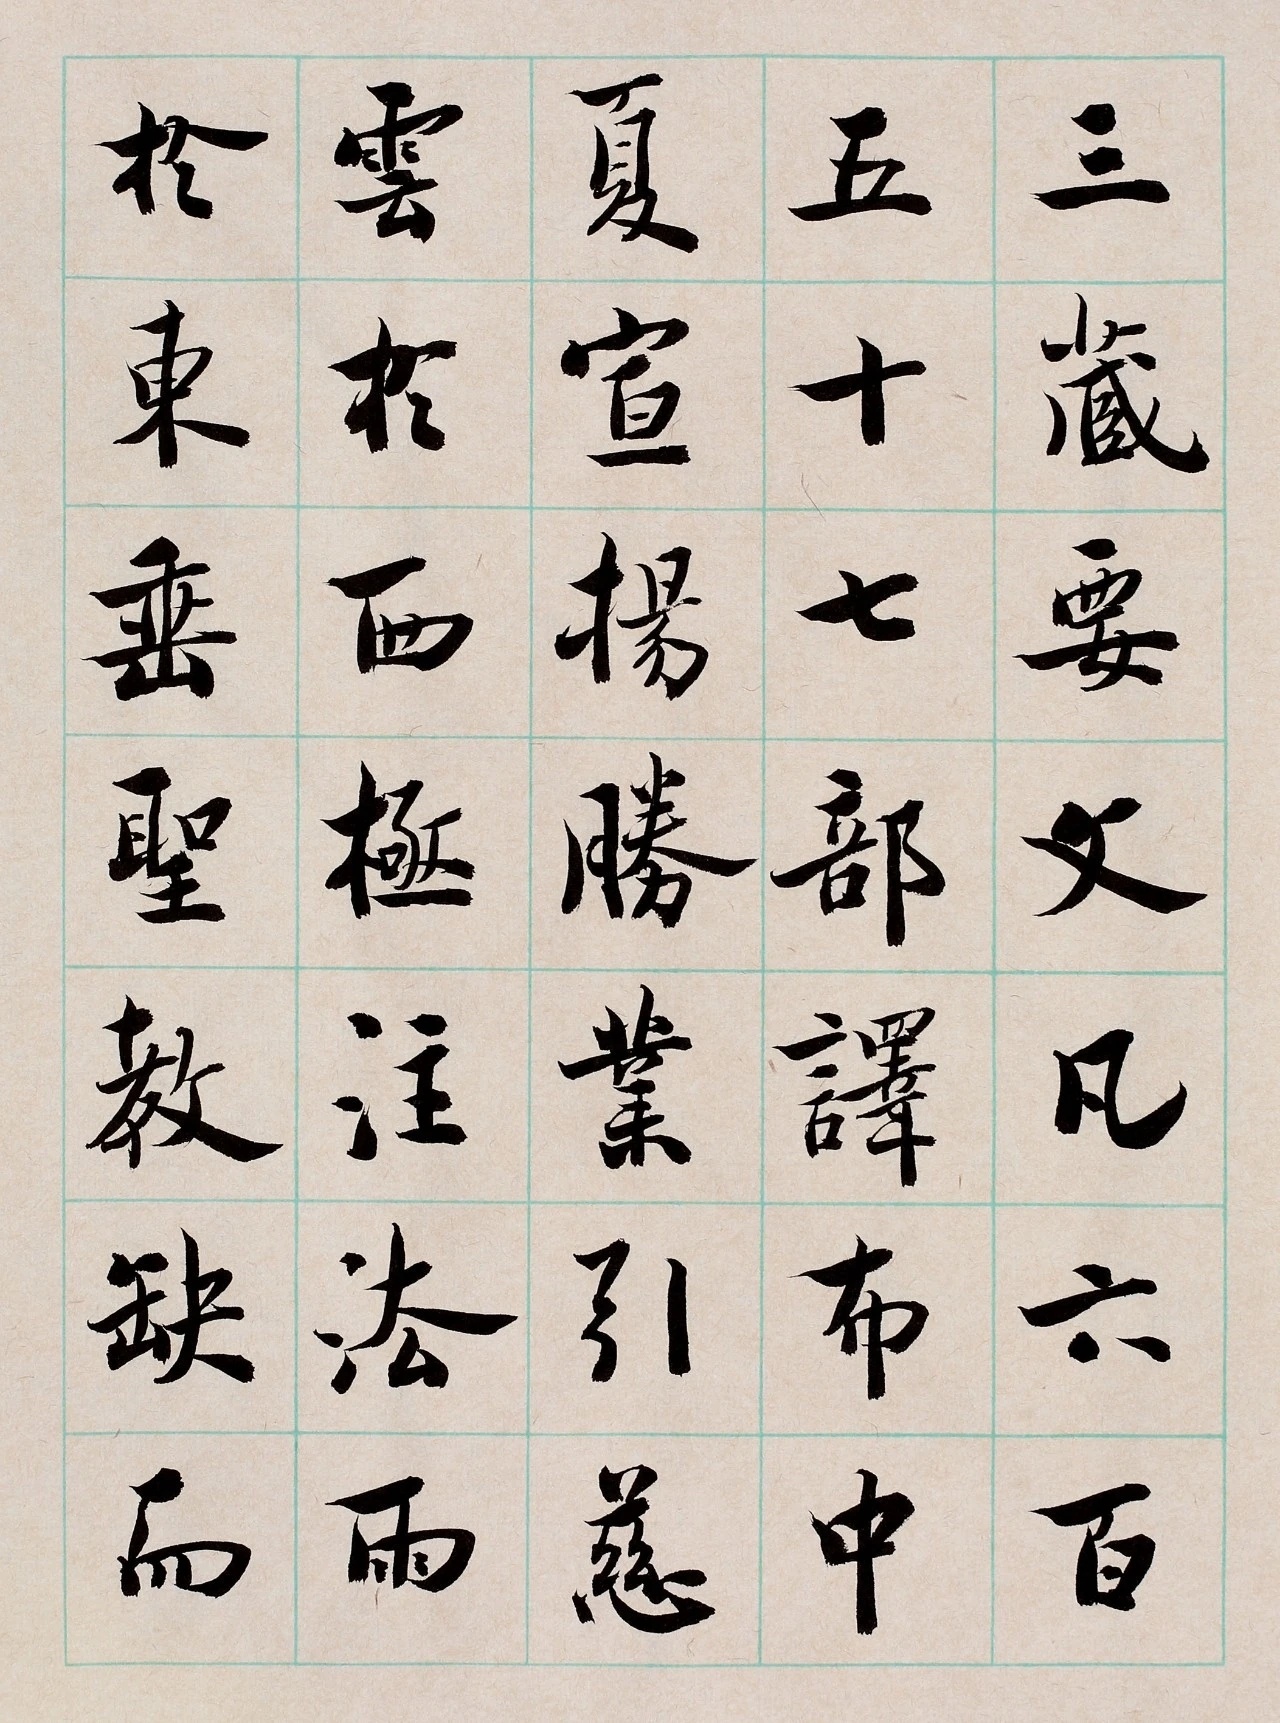 三藏要文凡六百
五十七部譯布中
夏宣揚勝業引慈
雲於西極注法雨
於東垂聖教缺而